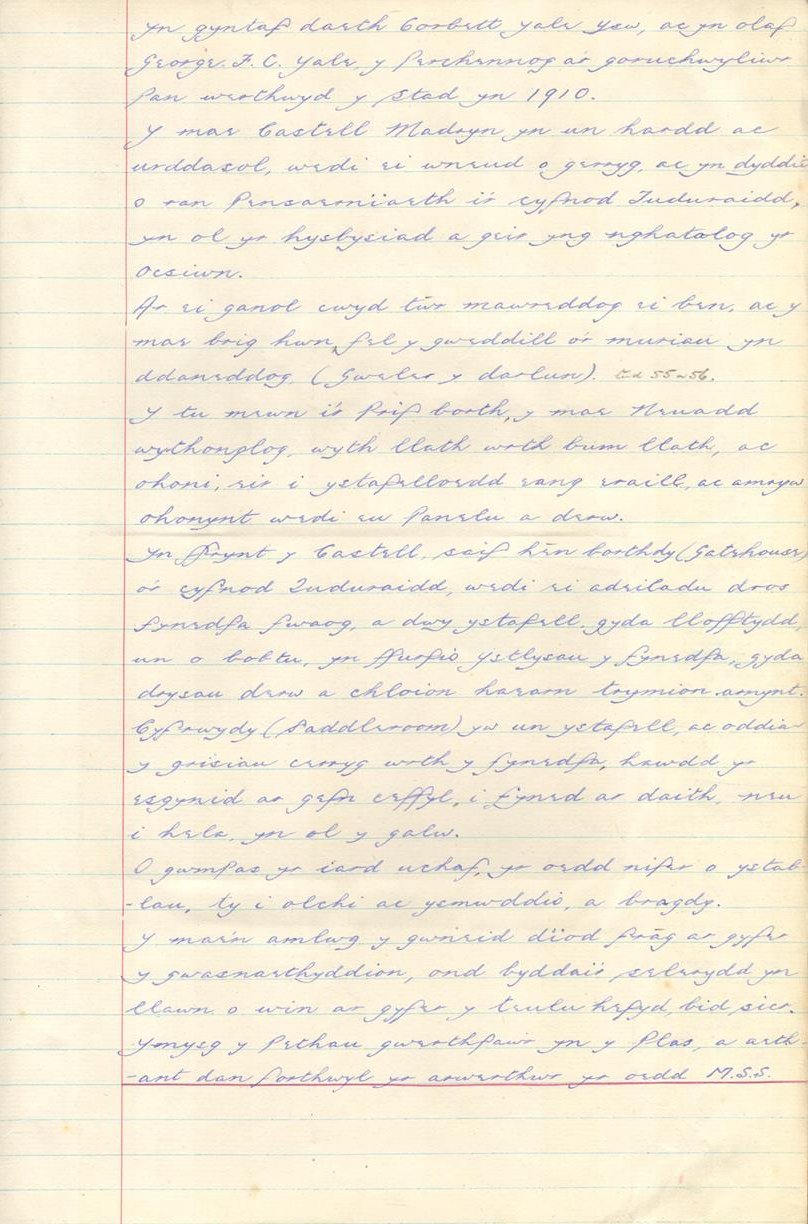 Yn gyntaf daeth Corbett Yale Ysw, ac yn olaf
George. F. C. Yale, y perchennog a'r goruchwyliwr
pan werthwyd y Stad yn 1910.
Y mae Castell Madryn yn un hardd ac
urddasol, wedi ei wneud o gerryg, ac yn dyddio
o ran Pensaerniaeth i'r cyfnod Tuduraidd,
yn ol yr hysbysiad a geir yng nghatalog yr
ocsiwn.
Ar ei ganol cwyd tŵr mawreddog ei ben, ac y
mae brig hwn, fel y gweddill o'r muriau yn
ddaneddog, (Gweler y darlun). tud 55 a 56.
Y tu mewn i'r Prif borth, y mae Neuadd
wythonglog, wyth llath wrth bum llath, ac
ohoni, eir i ystafelloedd eang eraill, ac amryw
ohonynt wedi eu panelu a derw.
Yn ffrynt y Castell, saif hên borthdy (Gatehouse)
o'r cyfnod Tuduraidd, wedi ei adeiladu dros
fynedfa fwaog, a dwy ystafell, gyda llofftydd,
un o bobtu, yn ffurfio ystlysau y fynedfa, gyda
drysau derw a chloion haearn trymion arnynt.
Cyfrwydy (Saddleroom) yw un ystafell, ac oddiar
y grisiau cerryg wrth y fynedfa, hawdd yr
esgynid ar gefn ceffyl, i fyned ar daith, neu
i hela, yn ol y galw.
O gwmpas yr iard uchaf, yr oedd nifer o ystab-
-lau, ty i olchi ac ysmwddio, a bragdy.
Y mae'n amlwg y gwneid dïod frâg ar gyfer
y gwasnaethyddion, ond byddai'r selerydd yn
llawn o win ar gyfer y teulu hefyd, bid sicr.
Ymysg y Pethau gwerthfawr yn y Plas, a aeth-
-ant dan forthwyl yr arwerthwr yr oedd M.S.S.